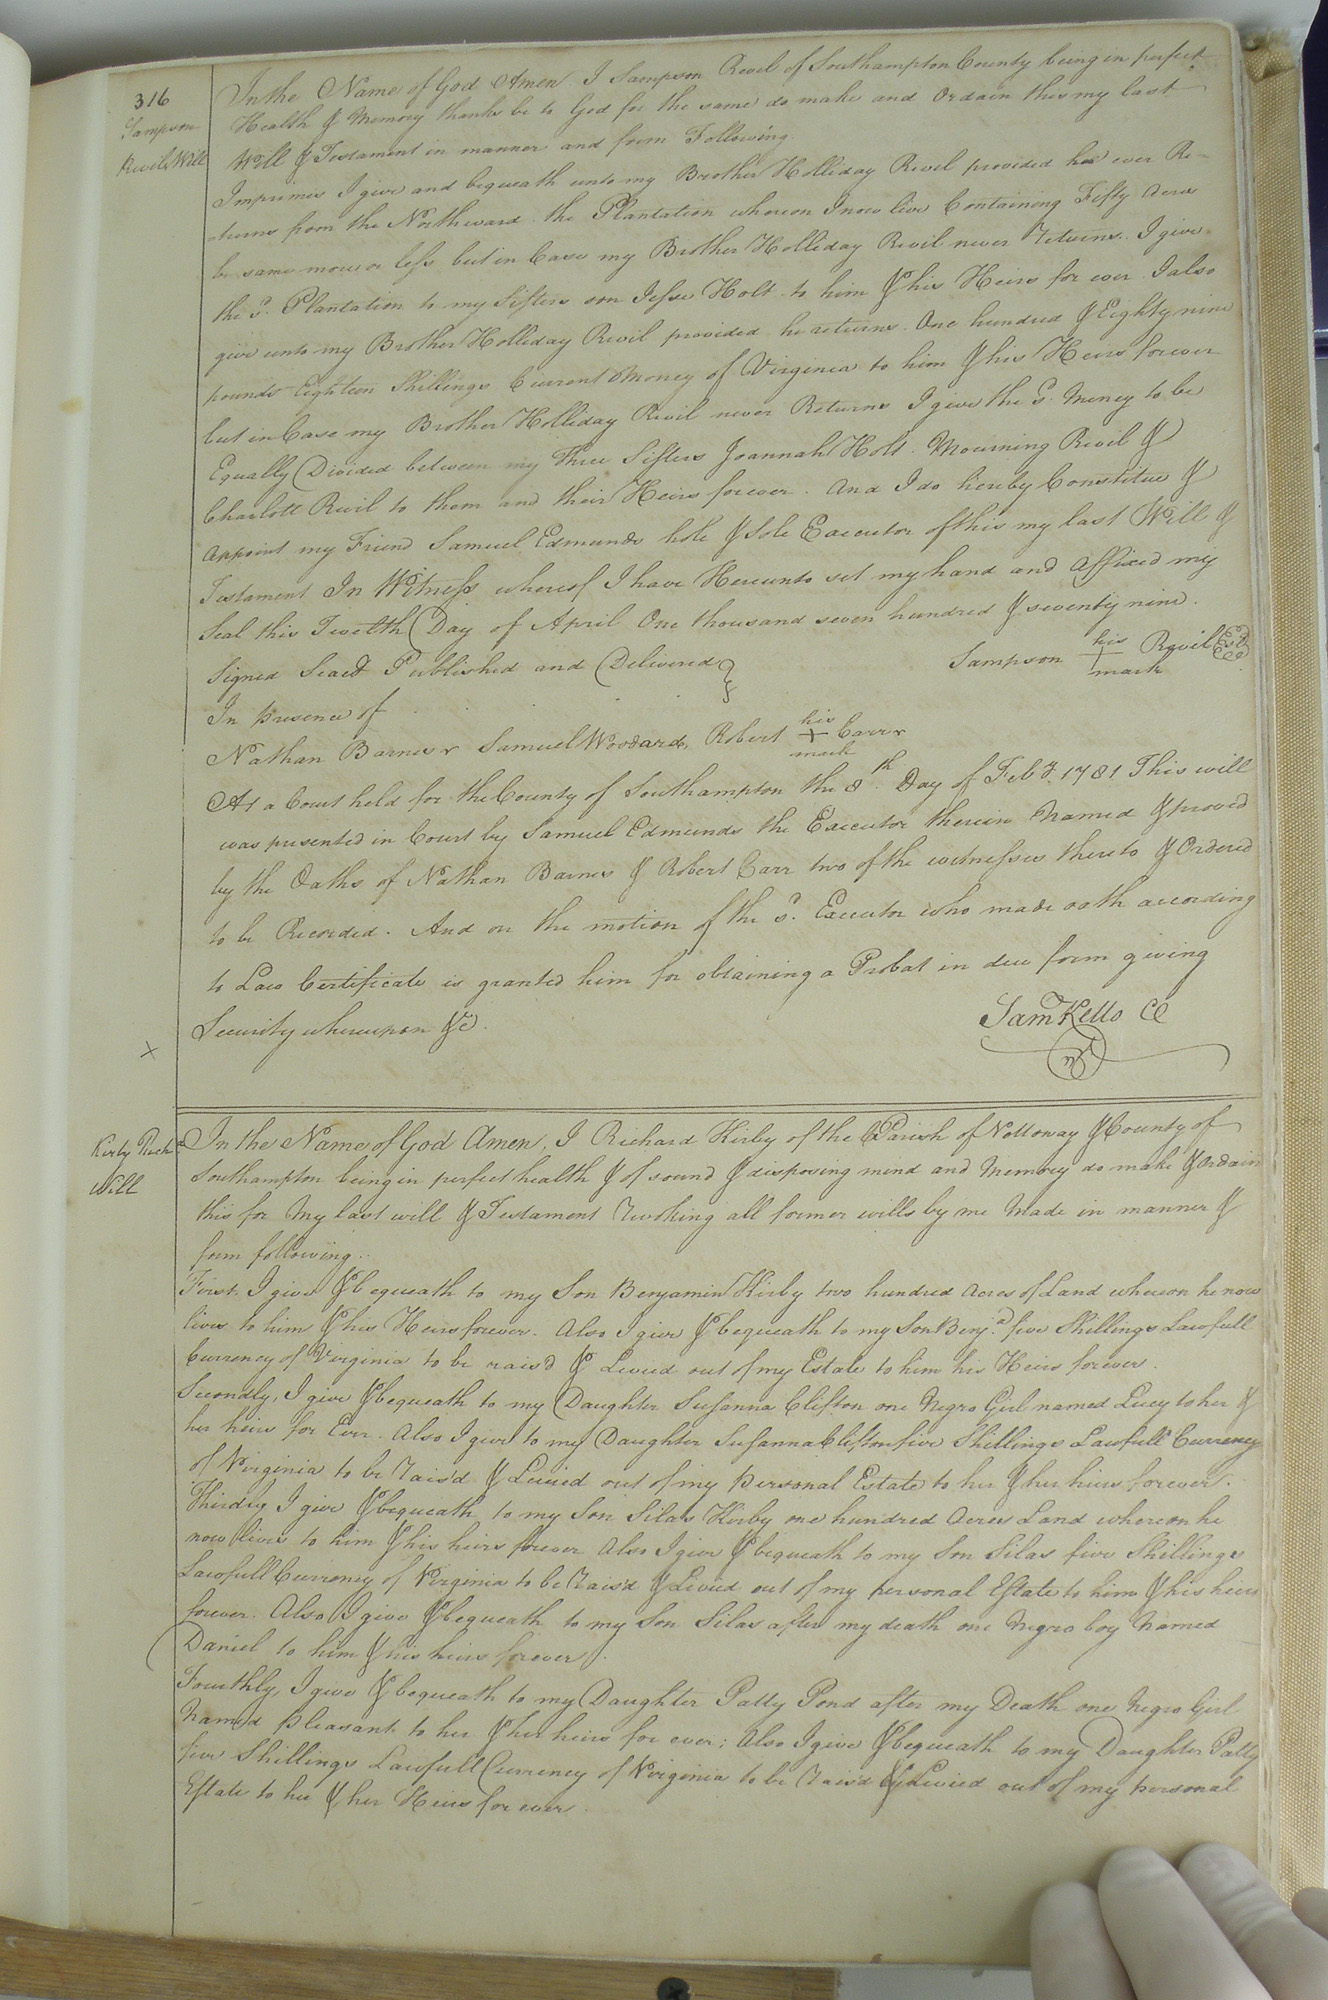 316
Sampson
Revils Will
In the Name of God Amen I Sampson Revil of Southampton County being in perfect
Health & Memory thanks be to God for the same do make and Ordain this my last
Will & Testament in manner and form Following.
Imprimes I give and bequeath unto my Brother Holliday Revil provided he ever Re-
-turns from the Northward the Plantation whereon I now live Containing Fifty Acres
be same more or less but in Case my Brother Holliday Revil never Returns. I give
the sd. Plantation to my Sisters son Jesse Holt to him & his Heirs for ever I also
give unto my Brother Holliday Revil provided he returns. One hundred & Eighty nine
pounds Eighteen Shillings Current Money of Virginia to him & his Heirs forever
but in Case my Brother Holliday Revil never Returns I give the sd. Money to be
Equally Divided between my Three Sisters Joannah Holt. Mourning Revil &
Charlott Revil to them and their Heirs forever. And I do hereby Constitue &
appoint my Friend Samuel Edmunds hole & Sole Executor of this my last Will &
Testament In Witness whereof I have Hereunto set my hand and affixed my
Seal this Twelth Day of April One thousand seven hundred & seventy nine.
Signed Seaed Published and Delivered
Sampson his mark Revil
In presence of
Nathan Barnes Samuel Woodard, Robert his + mark Carr
At a Court held for the County of Southampton the 8th. Day of Feby. 1781 This will
was presented in Court by Samuel Edmunds the Executor therein Named & proved
by the Oaths of Nathan Barnes & Robert Carr two of the witnesses thereto & Ordered
to be Recorded. And on the motion of the sd. Executor who made oath according
to Law Certificate is granted him for obtaining a Probat in due form giving
Security whereupon &c.
Samd Kello CC
x
Kirby Richd
Will
In the Name of God Amen, I Richard Kirby of the Parish of Nottoway & County of
Southampton being in perfect health & of sound & disposing mind and Memory do make & Ordain
this for My last will & Testament Revoking all former wills by me Made in manner &
form following..
First, I give & bequeath to my Son Benjamin Kirby two hundred Acres of Land whereon he now
lives to him & his Heirs forever. Also I give & bequeath to my Son Benja. five Shillings Lawfull
Currency of Virginia to be rais'd & Levied out of my Estate to him his Heirs forever.
Secondly, I give & bequeath to my Daughter Susanna Clifton one Negro Girl named Lucy to her &
her heirs for Ever. Also I give to my Daughter Susanna Clifton five Shillings Lawfull Currency
of Virginia to be Rais'd & Levied out of my personal Estate to her & her heirs forever.
Thirdly I give & bequeath to my Son Silas Kirby one hundred Acres Land whereon he
now lives to him & his heirs forever Also I give & bequeath to my Son Silas five Shillings
Lawfull Currency of Virginia to be Rais'd & Levied out of my personal Estate to him & his heirs
forever. Also I give & bequeath to my Son Silas after my death one Negro boy Named
Daniel to him & his heirs forever.
Fourthly, I give & bequeath to my Daughter Patty Pond after my Death one Negro Girl
Named Pleasant to her & her heirs for ever; Also I give & bequeath to my Daughter Patty
five Shillings Lawfull Currency of Virginia to be Rais'd & Levied out of my personal
Estate to her & her Heirs for ever.